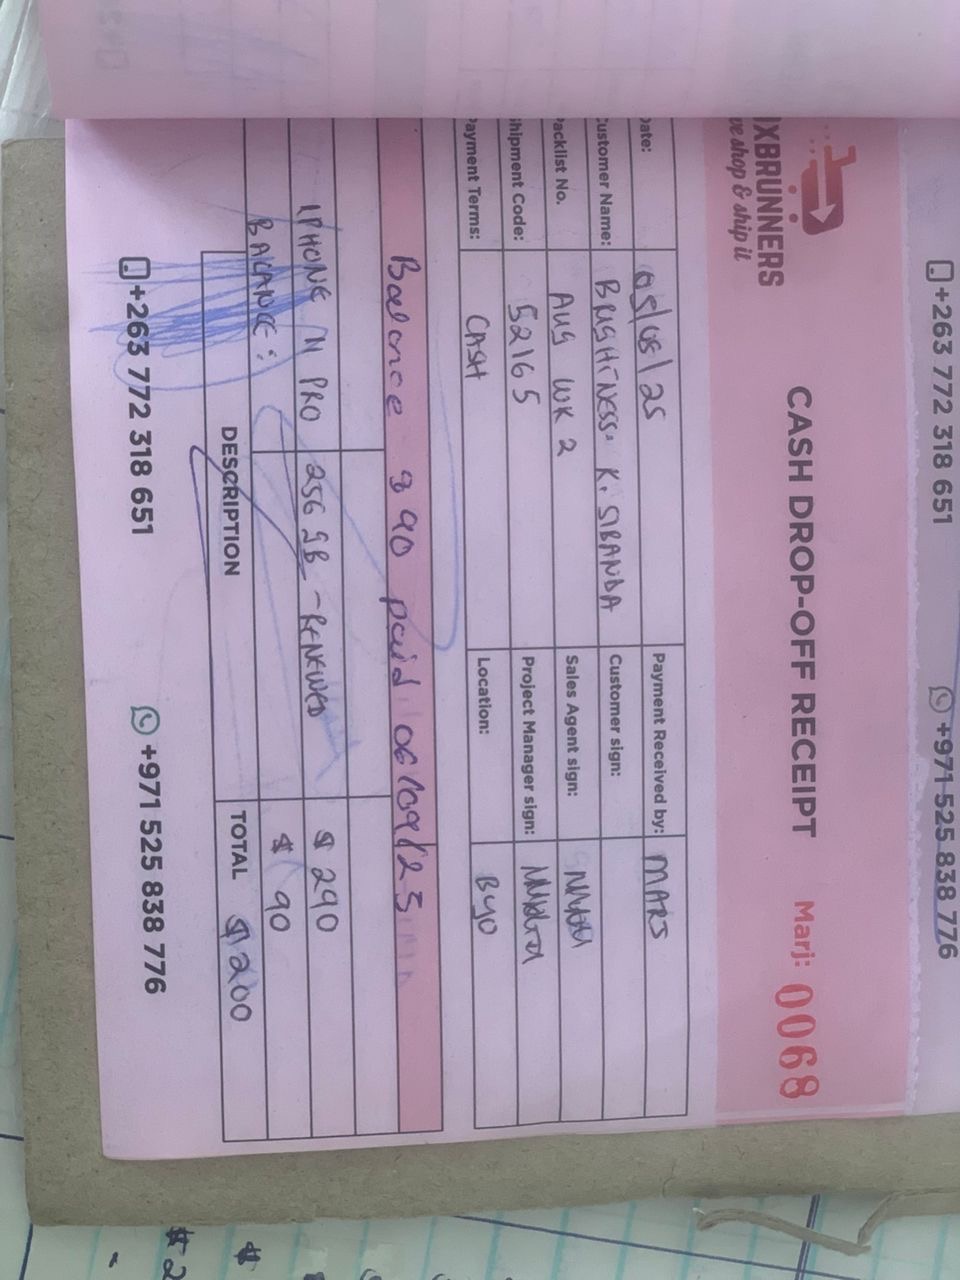 +263 772 318 651 +971 525 838 776
XBRUNNERS
ve shop & ship it
CASH DROP-OFF RECEIPT Marj: 0068
Date: 05/08/25 Payment Received by: MARS
Customer Name: BRIGHTNESS K. SIBANDA Customer sign:
Packlist No. AUG WK 2 Sales Agent sign:
Shipment Code: 52165 Project Manager sign:
Payment Terms: CASH Location: Byo
Balance $90 paid 06/09/25
IPHONE 11 PRO 256 GB - RENEWED $ 290
BALANCE: $ 90
DESCRIPTION TOTAL $ 200
+263 772 318 651 +971 525 838 776
$
$ 2